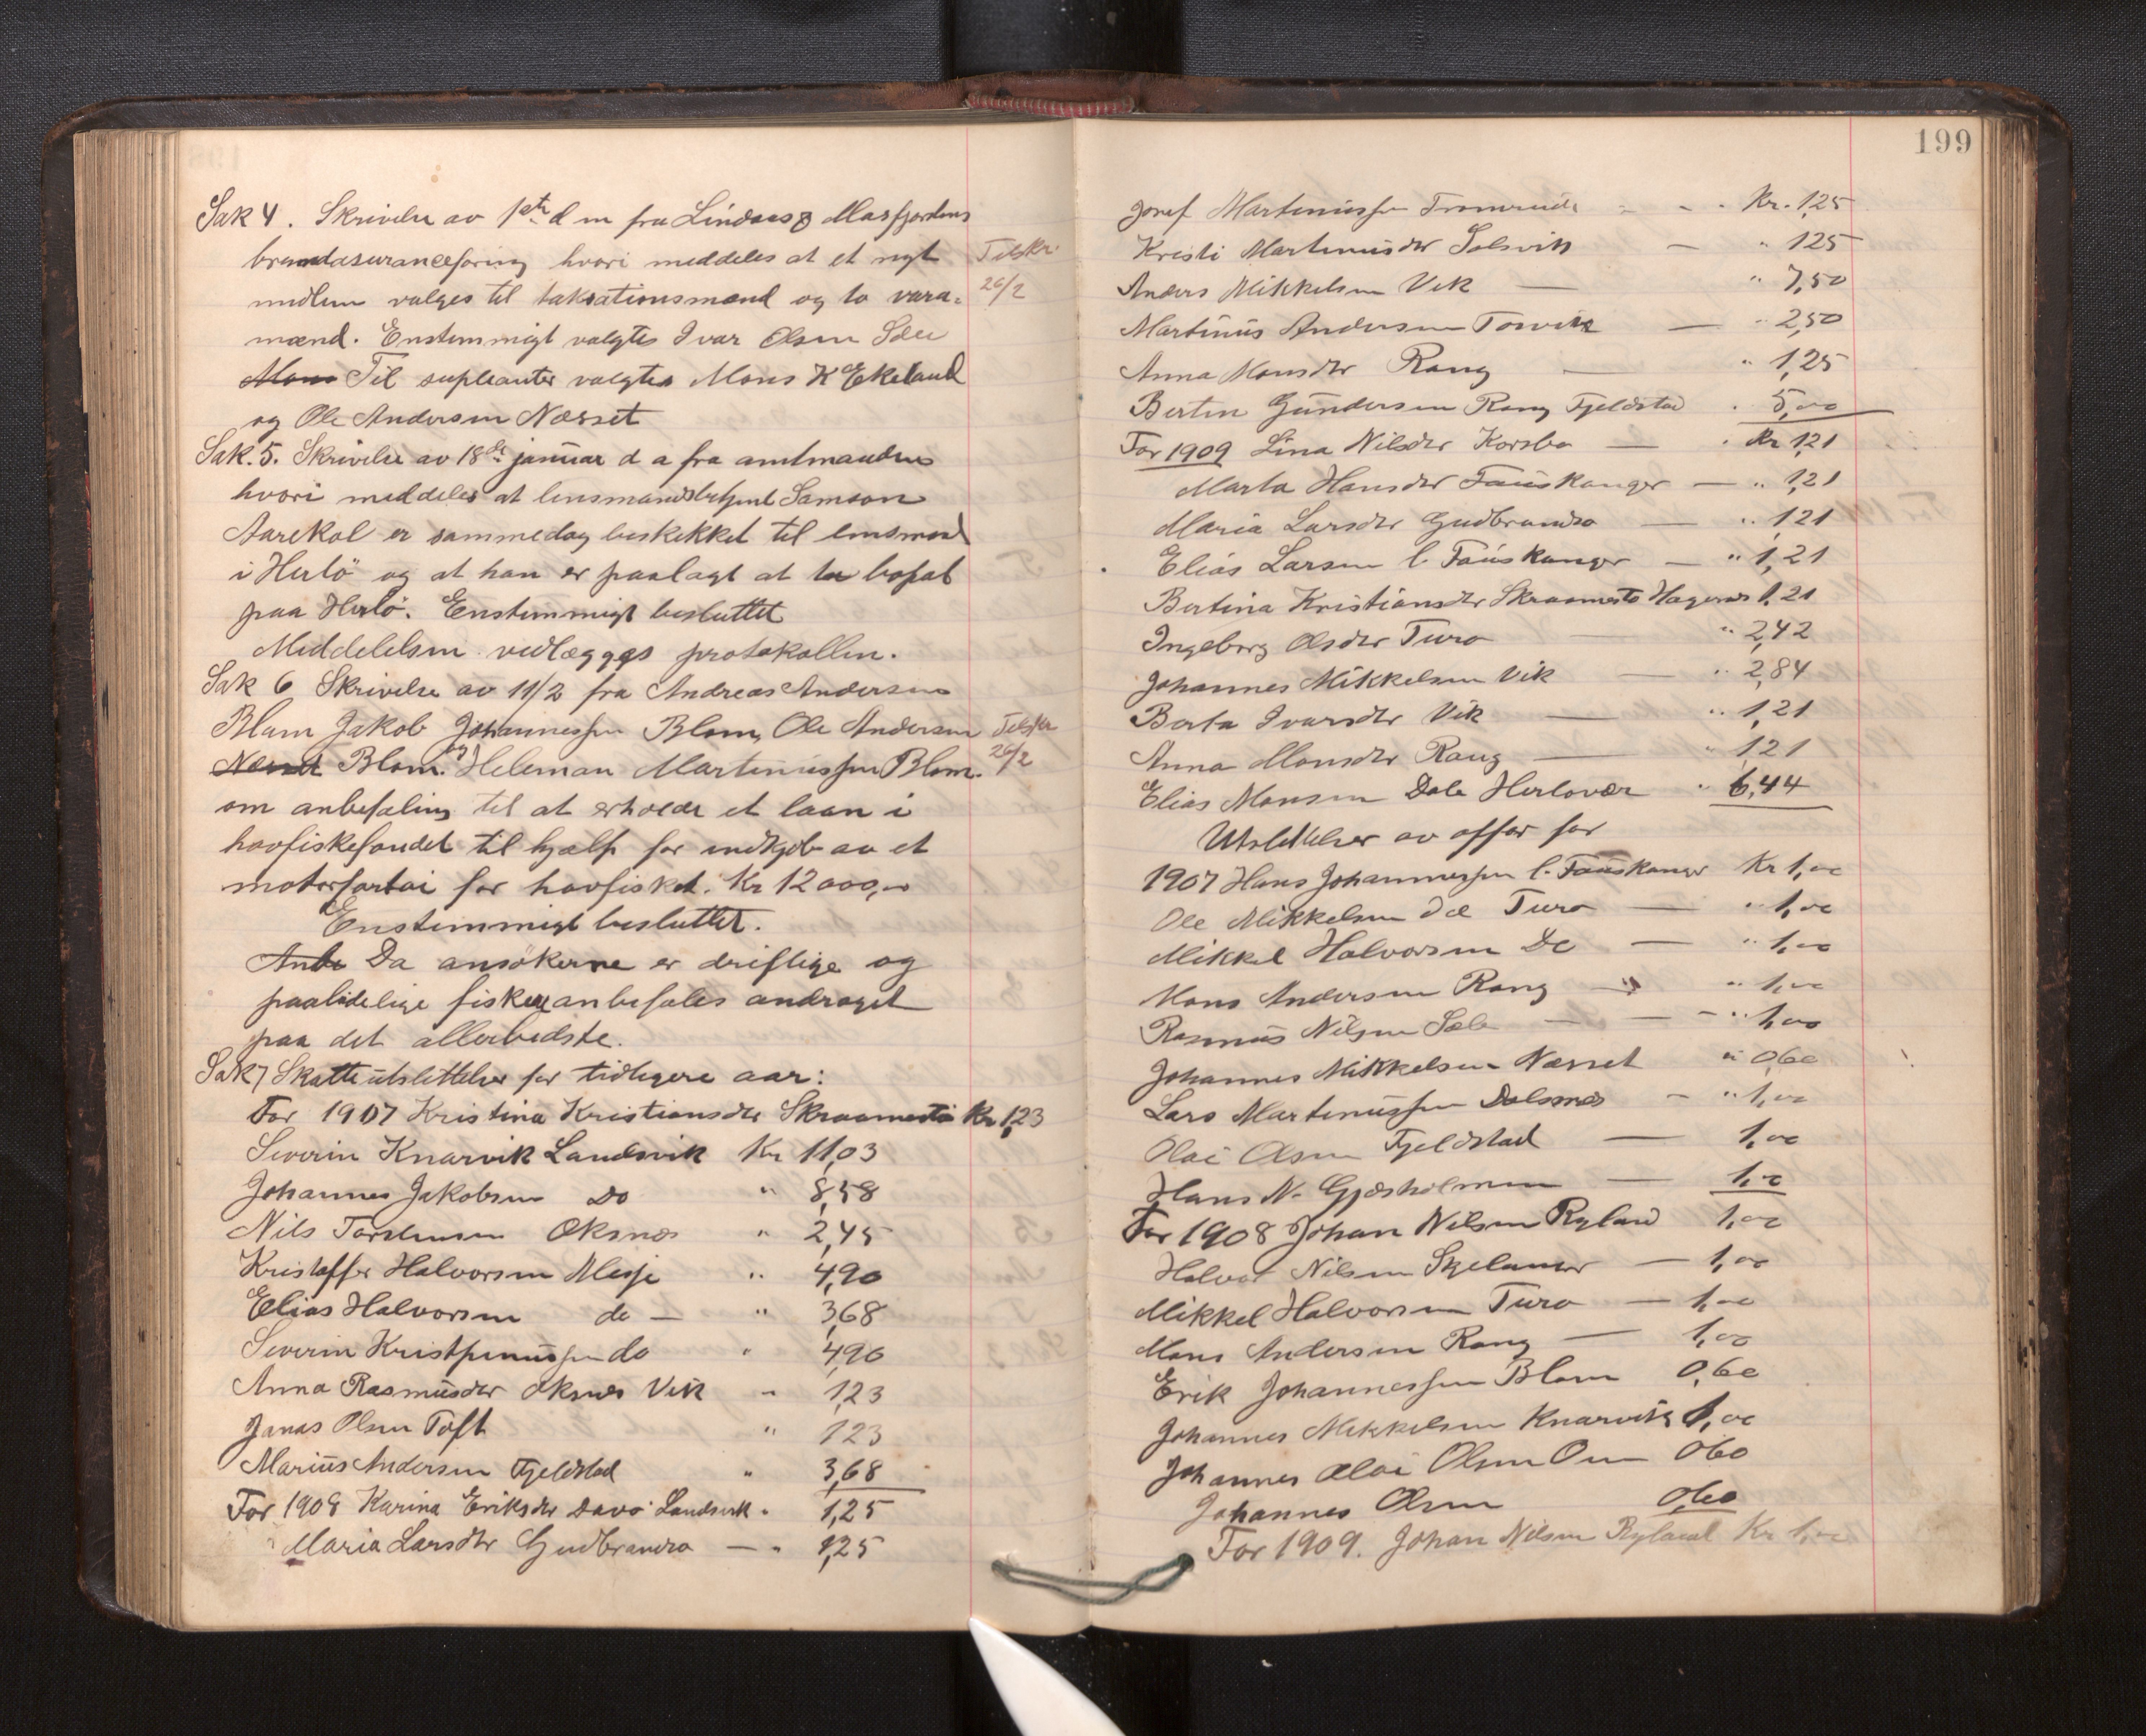 Sak 4. Skrivelse av 1ste d m fra Lindaas & Masfjordens
brandasuranceforing hvori meddeles at et nyt
medlem valges til taksationsmænd og to vara-
mænd. Enstemmigt valgtes Ivar Olsen Sæle
Mons Til supleanter valgtes Mons K Ekeland
og Ole Andersen Næsset
Tilskr.
26/2
Sak. 5. Skrivelse av 18de januar d a fra amtmanden
hvori meddeles at lensmandsbetjent Samson
Aarekol er sammedag beskikket til lensmand
i Herlö og at han er paalagt at ta bopæl
paa Herlö. Enstemmigt besluttet
Meddelelsen vedlægges protokollen.
Sak 6 Skrivelse av 11/2 fra Andreas Andersen
Blom Jakob Johannessen Blom, Ole Andersen
Næsset Blom. og Heleman Martinussen Blom.
Tilskr
26/2
om anbefaling til at erholde et laan i
havfiskefondet til hjælp for indkjöb av et
motorfartöi for havfisket. Kr 12000,00
Enstemmigt besluttet.
Anbe Da ansökerne er driftige og
paalidelige fiskere anbefales andraget
paa det allerbedste.
Sak 7 Skatteutslettelser for tidligere aar:
For 1907 Kristina Kristiansdtr Skraamestö Kr 1,23
Severin Knarvik Landsvik Kr 11,03
Johannes Jakobsen Do " 8,58
Nils Torstensen Oksnes " 2,45
Kristoffer Halvorsen Misje " 4,90
Elias Halvorsen do — " 3,68
Severin Kristfinnussen do " 4,90
Anna Rasmusdtr Oksnes Vik " 1,23
Jonas Olsen Toft " 1,23
Marius Andersen Fjeldstad " 3,68
For 1908 Karina Eriksdtr Davö Landsvik " 1,25
Maria Larsdtr Gudbrandsö — " 1,25
199
Josef Martinussen - - Kr. 1,25
Kristi Martinusdtr Solsvik — " 1,25
Anders Mikkelsen Vik — " 7,50
Martinus Andersen Torvik — " 2,50
Anna Monsdtr Rong — " 1,25
Bertin Gundersen Rong Fjeldstad " 5,00
For 1909 Lina Nilsdtr Korsbö — " Kr 1,21
Marta Hansdtr Fauskanger — " 1,21
Maria Larsdtr Gudbrandsö — " 1,21
Elias Larsen l. Fauskanger — " 1,21
Bertina Kristiansdtr Skraamestö Hagenes 1,21
Ingeborg Olsdtr Turö — " 2,42
Johannes Mikkelsen Vik — " 2,84
Berta Ivarsdtr Vik — " 1,21
Anna Monsdtr Rong — " 1,21
Elias Monsen Dale Herlövær " 6,44
Utslettelser av offer for
1907 Hans Johannessen l. Fauskanger Kr 1,00
Ole Mikkelsen Turö — " 1,00
Mikkel Halvorsen Do — " 1,00
Mons Andersen Rong — " 1,00
Rasmus Nilsen Sæle — — " 1,00
Johannes Mikkelsen Næsset " 0,60
Lars Martinussen Dalsnes - " 1,00
Olai Olsen Fjeldstad — 1,00
Hans N. Gjøsholmen — 1,00
For 1908 Johan Nilsen Ryland 1,00
Halvor Nilsen Skjelanger — 1,00
Mikkel Halvorsen Turö — 1,00
Mons Andersen Rong — 1,00
Erik Johannessen Blom 0,60
Johannes Mikkelsen Knarvik 1,00
Johannes Olai Olsen Oen 0,60
Johannes Olsen 0,60
For 1909. Johan Nilsen Ryland Kr 1,00